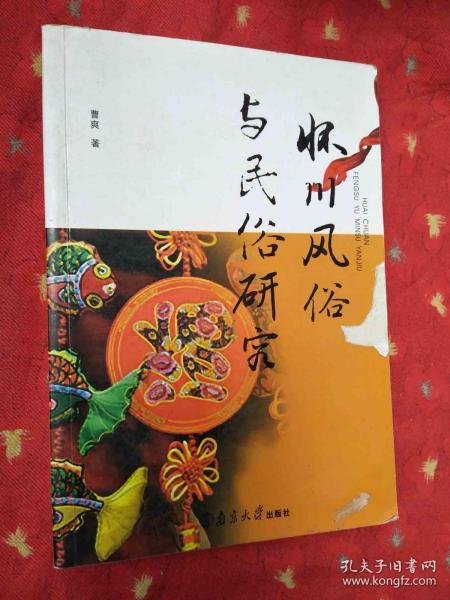 怀川风俗
与民俗研究
HUAI CHUAN
FENGSU YU MINSU YANJIU
曹爽 著
南京大学出版社
孔夫子旧书网
www.kongfz.com